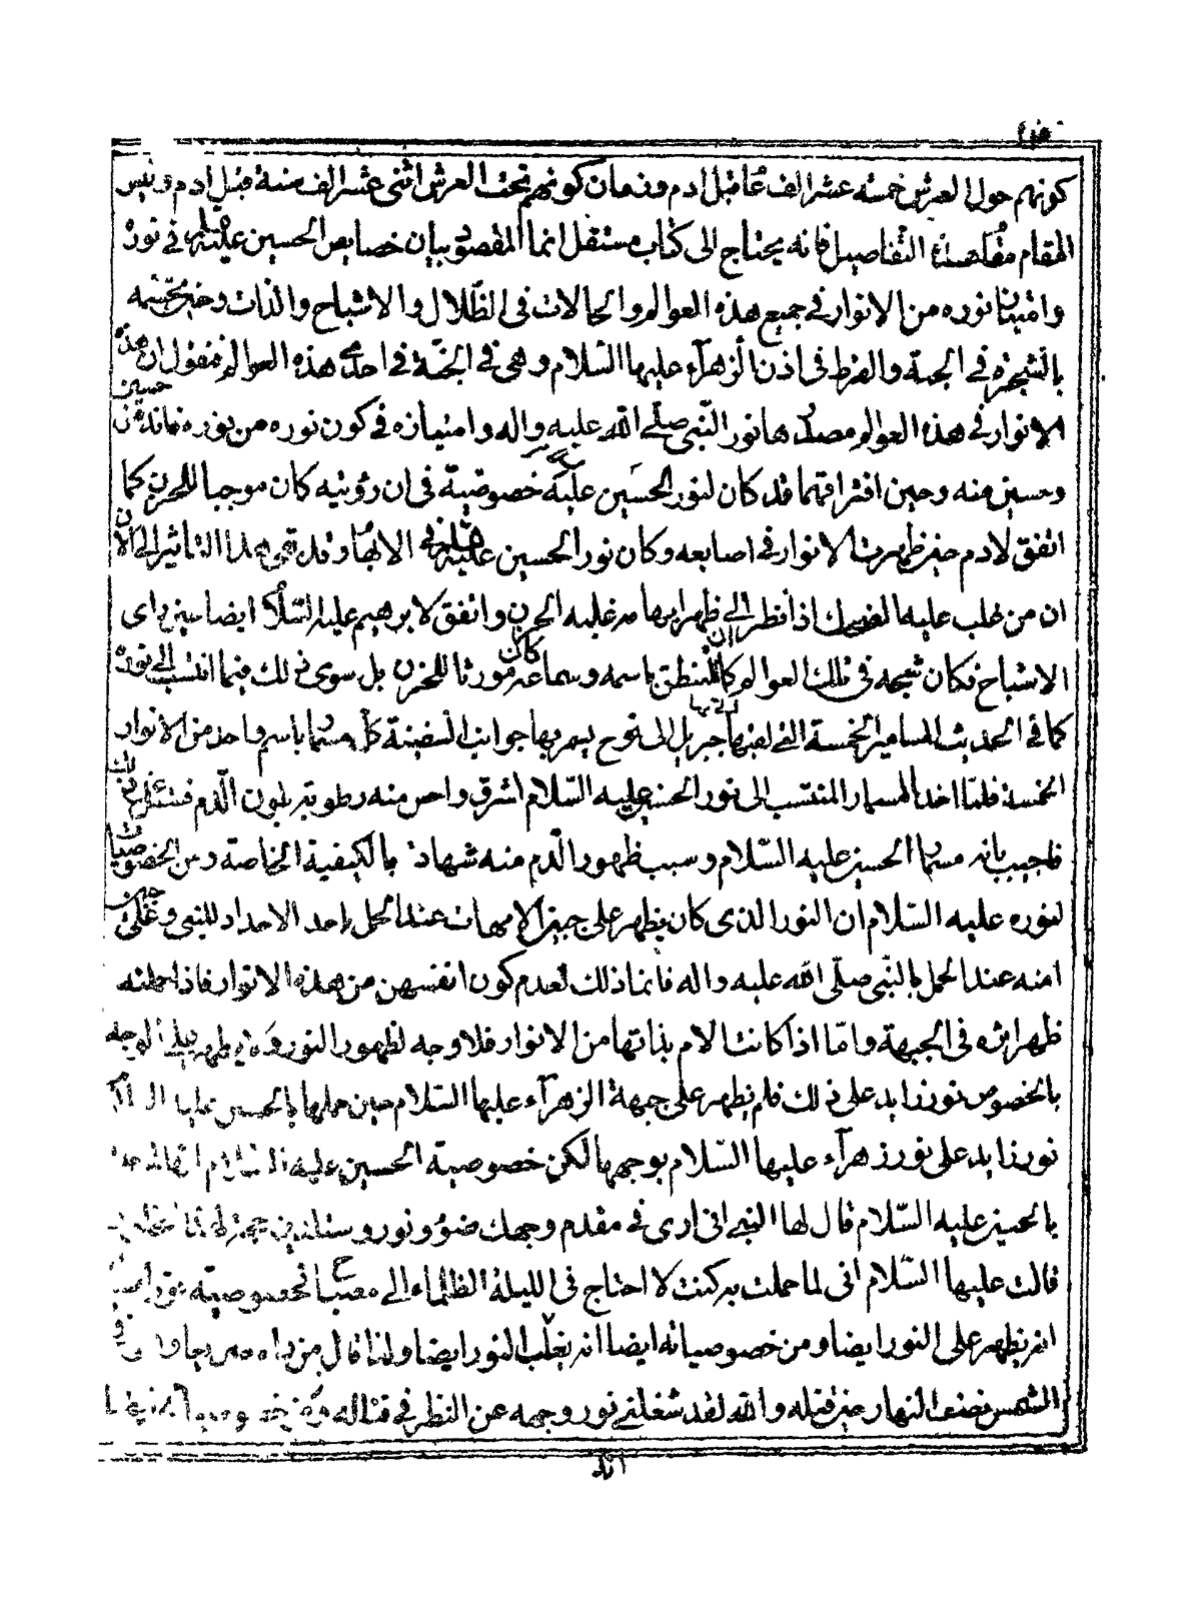 كونهم حول العرش خمسة عشر الف عاما قبل ادم وزمان كونهم تحت العرش اثنى عشر الف سنة قبل ادم وليس
المقام مقام هذه التفاصيل فانه يحتاج الى كتاب مستقل انما المقصود بيان خصايص الحسين عليه السلم في نوره
وامتياز نوره من الانوار في جميع هذه العوالم والحالات في الظلال والاشباح والذرات وحين تجسمه
بالشجرة في الجنة والقرط في اذن الزهرآء عليها السّلام وهي في الجنّة في احدى هذه العوالم فنقول ان هذه
الانوار في هذه العوالم مصدرها نور النّبي صلّى الله عليه واله وامتيازه في كون نوره من نوره فانه من حسين
وحسين منه وحين افتراقهما قد كان لنور الحسين عليه خصوصية في ان رؤيته كان موجبا للحزن كما
اتفق لادم حين ظهرت الانوار في اصابعه وكان نور الحسين عليه السلم في الابهام وقد بقي هذا التاثير الى الان
ان من غلب عليه الضحك اذا نظر الى ظهر ابهامه غلبه الحزن واتفق لابرهيم عليه السّلام ايضا حين راى
الاشباح فكان شبحه في تلك العوالم كان النطق باسمه وسماعه كان مورثا للحزن بل سوى ذلك فيما انتسب الى نوره
كما في الحديث المسامير الخمسة التي اتى بها جبريل الى نوح يسمر بها جوانب السفينة كل مسمار باسم واحد من الانوار
الخمسة فلمّا اخذ المسمار المنتسب الى نور الحسين عليه السّلام اشرق واحس منه رطوبة بلون الّدم فسئل عن ذلك
فاجيب بانه مسمار الحسين عليه السّلام وسبب ظهور الّدم منه شهادته بالكيفية الخاصة ومن الخصوصيات
لنوره عليه السّلام ان النور الذى كان يظهر على جبين الامهات عند الحمل باحد الاجداد للنبي وعلى جبين
امنه عند الحمل بالنّبي صلّى الله عليه واله فانما ذلك لعدم كون انفسهن من هذه الانوار فاذا حملنه
ظهر اثره في الجبهة وامّا اذا كانت الام بذاتها من الانوار فلا وجه لظهور النور
بالخصوص نور زايد على ذلك فلم يظهر على جبهة الزهرآء عليها السّلام حين حملها بالحسن عليه السلام
نور زايد على نور زهرآء عليها السّلام بوجهها لكن خصوصية الحسين عليه السّلام انها لما حملت
بالحسين عليه السّلام قال لها النبي اني ارى في مقدم وجهك ضوء ونور وستلدين حجة لهذا الخلق
قالت عليها السّلام اني لما حملت به كنت لا احتاج في الليلة الظلماء الى مصباح فخصوصية نوره
انه يظهر على النور ايضا ومن خصوصياته ايضا انه يغلب النور ايضا ولذا قال من راه صريعا في
الشمس نصف النهار حين قتله والله لقد شغلني نور وجهه عن النظر في قتاله